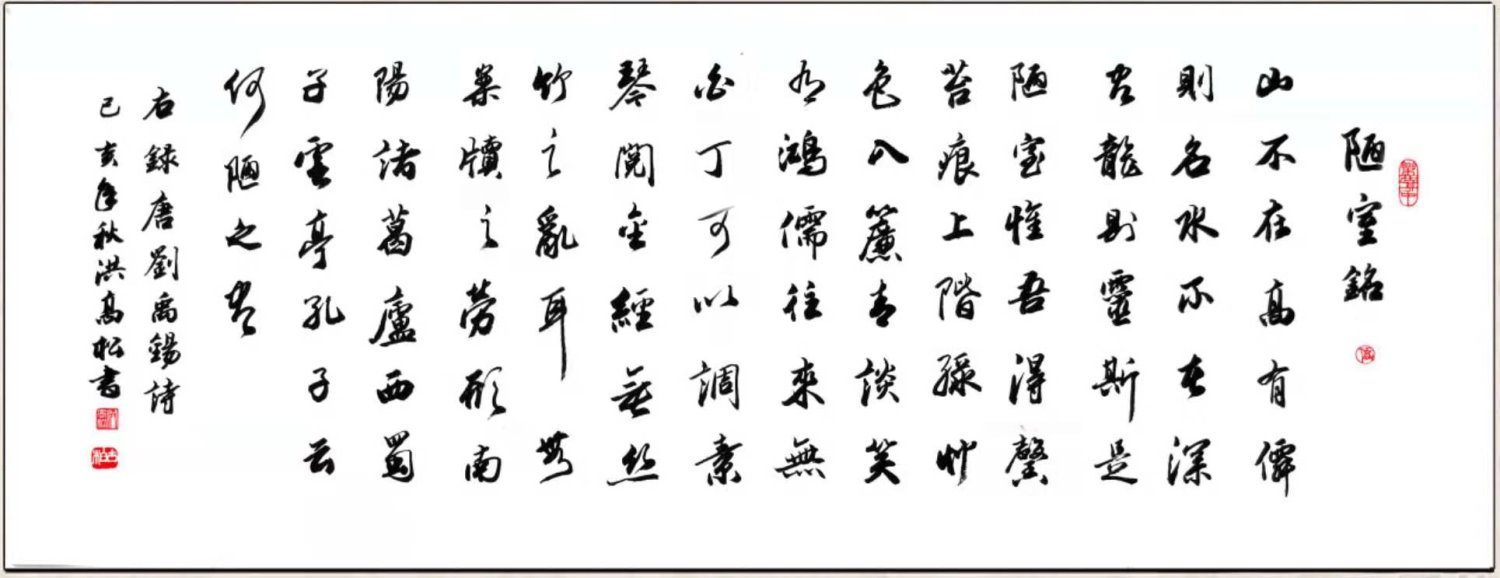 陋室銘
山不在高有僊
則名水不在深
有龍則靈斯是
陋室惟吾得馨
苔痕上階綠艸
色入簾青談笑
有鴻儒往來無
白丁可以調素
琴閱金經無絲
竹之亂耳無
案牘之勞形南
陽諸葛廬西蜀
子雲亭孔子云
何陋之有
右錄唐劉禹錫詩
己亥年秋洪高松書